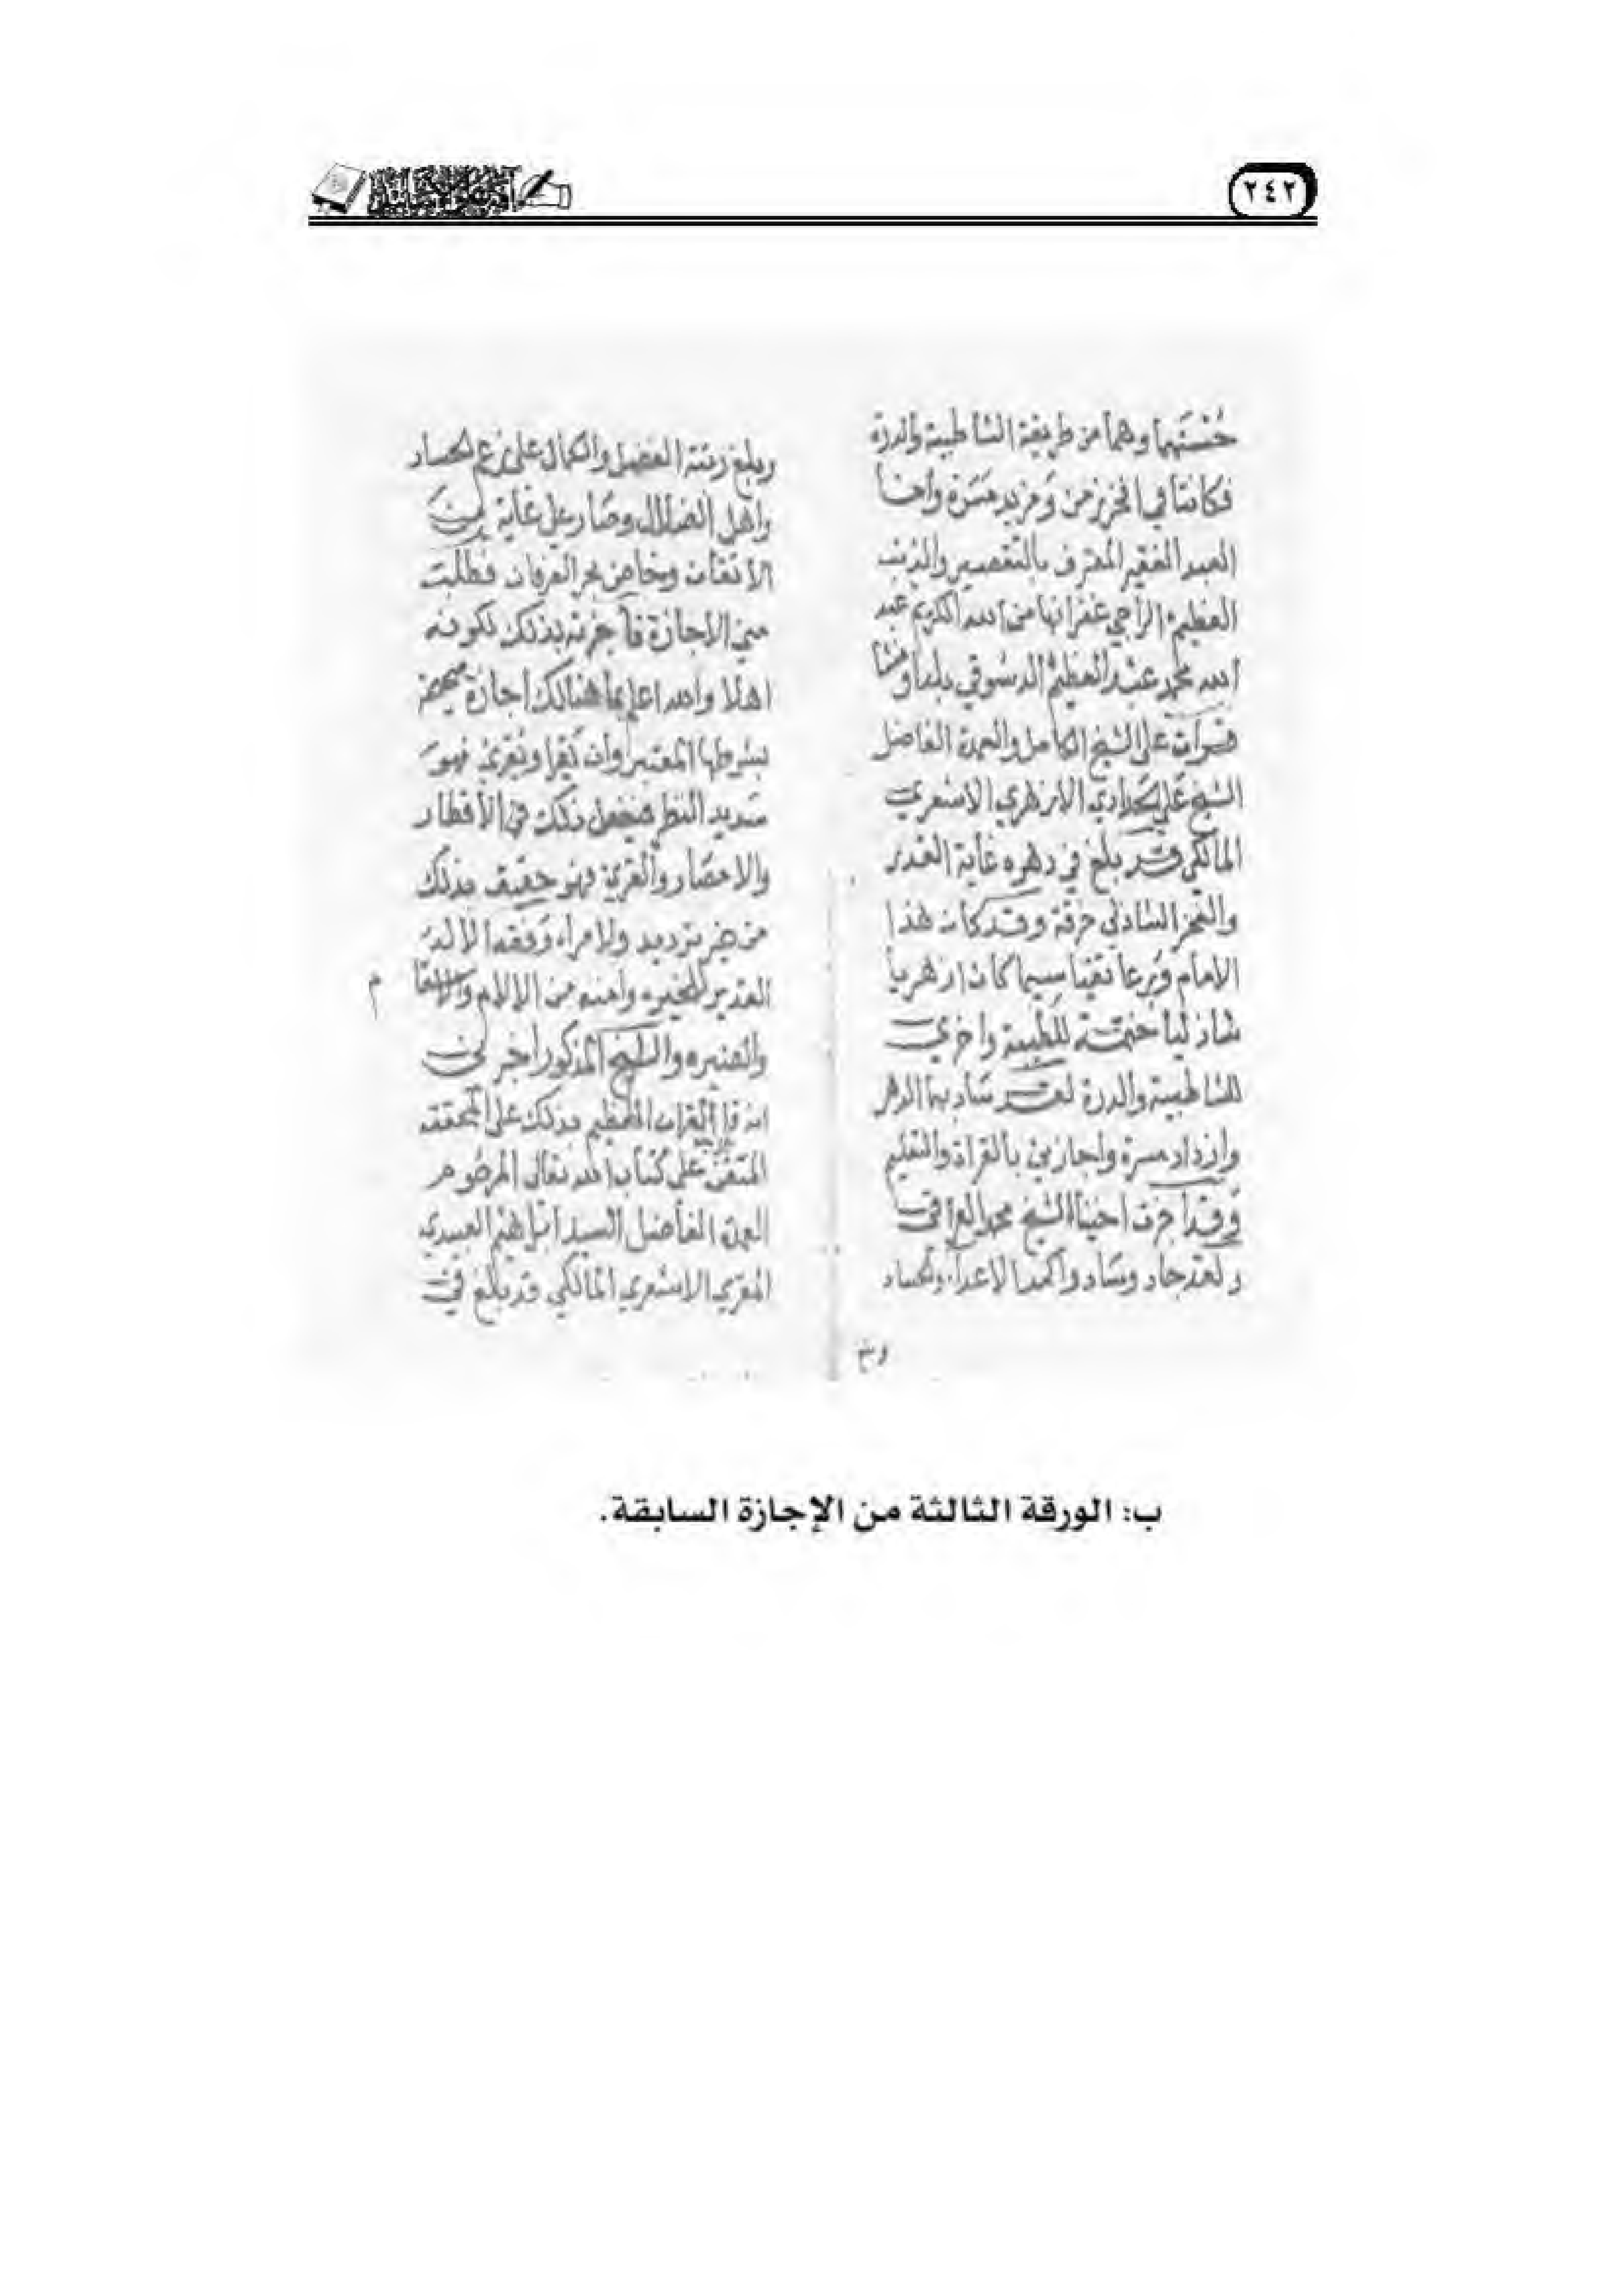 ٢٤٢
وهما من طريقة الشاطبية والدرة
فكانتا في ومزيد
العبد الفقير المعترف بالتقصير والذنب
العظيم الراجي غفرانها من الله الكريم عبد
الله محمد عبد العظيم الدسوقي بلدا
قرأت على الشيخ الكامل والعمدة الفاضل
الشيخ علي الازهري الاشعري
المالكي قد بلغ في دهره غاية القدر
والفخر الشاذلي خرقة وقد كان هذا
الامام كان ازهريا
شاذليا ختمة للطيبة واخري
للشاطبية والدرة لقد ساد بها الدهر
وازداد مسرة واجازني بالقراة والتعليم
وقد اجزت اخينا الشيخ محمد
ولقد جاد وساد واكمد الاعداء والحساد
وبلغ
وبلغ رتبة الفضل والكمال على رغم الحساد
واهل الضلال وصار على غاية من
الاتقان وخاض بحر العرفان فطلب
مني الاجازة فأجزته بذلك لكونه
اهلا والله اعلم بما هنالك اجازة صحيحة
بشرطها المعتبر وان يقرا ويقرئ فهو
سديد النظر فيفعل ذلك في الأقطار
والامصار والقرى فهو حقيق بذلك
من غير ترديد ولا مراء وفقه الاله
القدير للخير وامنه من الالام
والشيخ المذكور اخبرني
انه قرأ القرآن العظيم بذلك على المحققة
المتقن على كتاب الله تعالى المرحوم
العمدة الفاضل السيد ابراهيم العبيدي
المقري الاشعري المالكي قد بلغ في
ب: الورقة الثالثة من الإجازة السابقة.